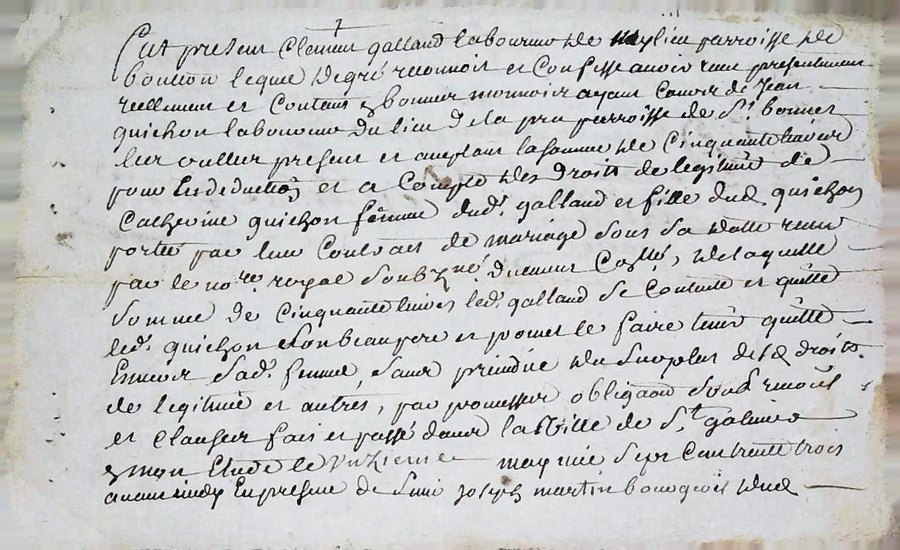 fut present Clement galland laboureur de maylieu parroisse de
bonson lequel de gré reconnoit et Confesse avoir reçu presentement
reellement et Contant en bonne monnoie ayant Cours de Jean
guichon laboureur du lieu de la pra parroisse de St. bonnet
les oulles present et aceptant la somme de Cinquante livres
pour En deduction et a Compte des droits de legitime de
Catherine guichon femme dud. galland et fille dud. guichon
portés par leur Contract de mariage sous sa datte reçu
par le nore royal soubzné. duement Collé, de laquelle
somme de Cinquante livres led. galland se Contente et quitte
led. guichon son beaupere et promet le faire tenir quitte
Envers sad. femme, sans prejudice du surplus desd. droits
de legitime et autres, par promesses obligaon soub. renons
et clauses fait et passé dans la Ville de St galmier
en mon Etude le onzieme may mil sept Cent trente trois
avant midy En presence de Sieur Joseph martin bourgeois dud.